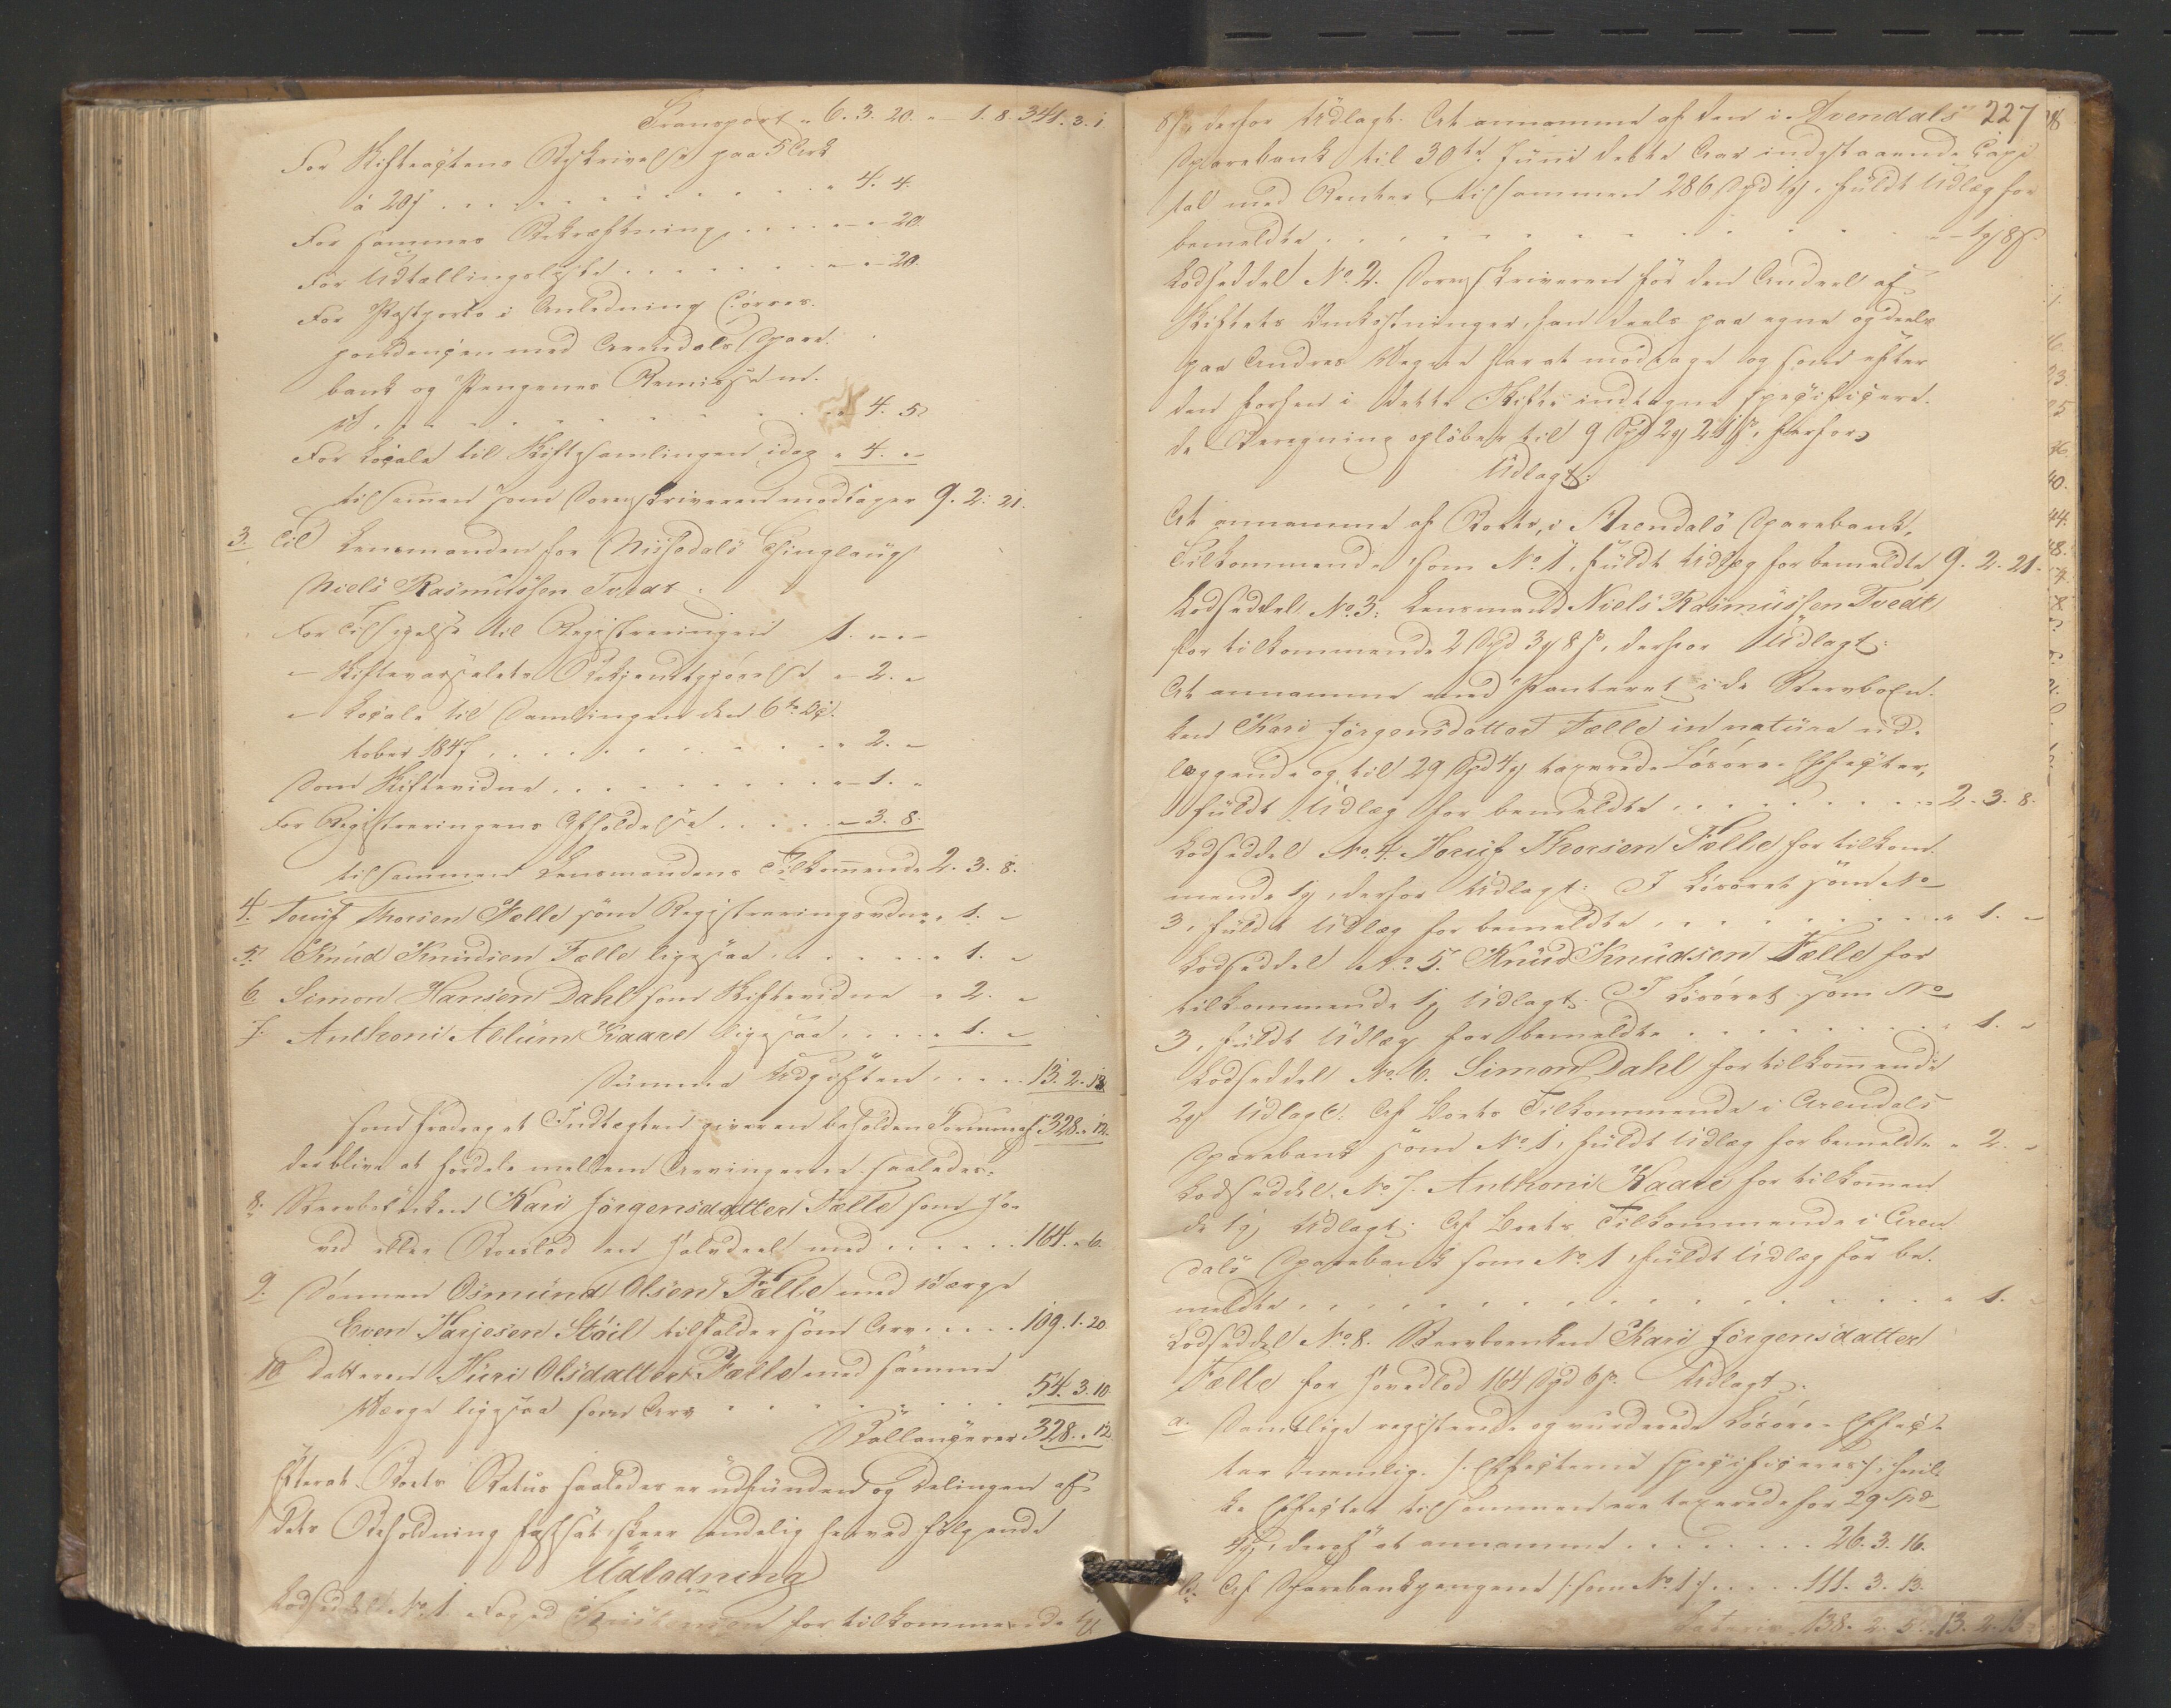 Transport " 6. 3. 20. " – 1. 8. 341. 3. 1
For Skifteactens Beskrivelse paa 5 Ark
à 20 s . . . . . . . . . " 4. 4.
For sammes Bekræftning . . . . " – 20.
For Udtællingslyste . . . . . . " – 20.
For Postporto i Anledning Corres-
pondencen med Arendals Spare-
bank og Pengenes Remisse m.
v. . . . . . . . . . . 4. 5
For Locale til Skiftesamlingen idag " 4. "
tilsammen som Sorenskriveren modtager 9. 2. 21.
3. Til Lensmanden for Nissedals Thinglaug
Niels Rasmussen Tvedt.
For Tilsigelse til Registreringen 1. " –
– Skiftevarselets Bekjendtgjörelse " 2. "
– Locale til Samlingen den 6te Oc-
tober 1847 . . . . . . . . . . " 2. "
Som Skiftevidne . . . . . . . . " 1. "
For Registreringens Afholdelse . . . . " 3. 8.
tilsammen Lensmandens Tilkommende 2. 3. 8.
4. Toruf Thorsen Fælle som Registreringsvidne " 1. "
5. Knud Knudsen Fælle ligesaa . . . . . " 1. "
6. Simon Hansen Dahl som Skiftevidne " 2. "
7. Anthoni Ablum Kaare ligesaa . . . . " 1. "
Summa Udgiften . . . . 13. 2. 13.
som fradraget Indtægten giver en beholden Formue af 328. " 12.
der blive at fordele mellem Arvingerne saaledes:
8. Stervboenken Kari Jörgensdatter Fælle som Ho-
ved eller Boeslod en halvdeel med . . . . . 164. " 6.
9. Sönnen Osmund Olsen Fælle med Værge
Even Tarjesen Stöil tilfalder som Arv . . . . . 109. 1. 20
10 Datteren Huri Olsdatter Fælle med samme
Værge ligesaa som Arv . . . . . . . . 54. 3. 10
Ballancerer 328. " 12.
Efterat Boets Status saaledes er udfunden og Delingen af
dets Beholdning fastsat, skeer endelig herved fölgende
Udlodning
Lodseddel No 1. Foged Christensen for tilkommende 1 ₰
227
8 s, derfor Udlagt. At annamme af den i Arendals
Sparebank til 30te Juni dette Aar indestaaende Capi-
tal med Renter, tilsammen 286 Spd 1 ₰, fuldt Udlæg for
bemeldte . . . . . . . . . . . . . " – 1 ₰ 8 s.
Lodseddel No 2. Sorenskriveren for den Andeel af
Skiftets Omkostninger, han deels paa egne og deels
paa Andres Vegne har at modtage og som efter
den forhen i dette Skifte indtagne specificere-
de Beregning oplöber til 9 Spd 2 ₰ 21 s, herfor
Udlagt:
At annamme af Boets, i Arendals Sparebank,
Tilkommende som No 1, fuldt Udlæg for bemeldte 9. 2. 21.
Lodseddel No 3. Lensmand Niels Rasmussen Tvedt
for tilkommende 2 Spd 3 ₰ 8 s, derfor Udlagt:
At annamme med Panteret i de Stervboen-
ken Kari Jörgensdatter Fælle in natura ud-
læggende og til 29 Spd 4 ₰ taxerede Lösöre-Effecter,
fuldt Udlæg for bemeldte . . . . . . . . . " 2. 3. 8.
Lodseddel No 4. Toruf Thorsen Fælle for tilkom-
mende 1 ₰, derfor Udlagt: I Lösöret som No
3, fuldt Udlæg for bemeldte . . . . . . . . " 1. "
Lodseddel No 5. Knud Knudsen Fælle for
tilkommende 1 ₰ Udlagt: I Lösöret som No
3, fuldt Udlæg for bemeldte . . . . . . . . " 1. "
Lodseddel No 6. Simon Dahl for tilkommende
2 ₰ Udlagt: Af Boets Tilkommende i Arendals
Sparebank som No 1, fuldt Udlæg for bemeldte " 2. "
Lodseddel No 7. Anthoni Kaare for tilkommen-
de 1 ₰ Udlagt: Af Boets Tilkommende i Aren-
dals Sparebank som No 1, fuldt Udlæg for be-
meldte . . . . . . . . . . . . . . " 1. "
Lodseddel No 8. Stervboenken Kari Jörgensdatter
Fælle for Hovedlod 164 Spd 6 s. Udlagt:
a. Samtlige registrerede og vurderede Lösöre-Effec-
ter nemlig. /: Effecterne specificeres :/ hvil-
ke Effecter tilsammen ere taxerede for 29 Spd
4 ₰, deraf at annamme . . . . . . . 26. 3. 16.
b. Af Sparebankpengene /: som No 1 :/ . . . . 111. 3. 13.
Lateris 138. 2. 5. 13. 2. 13